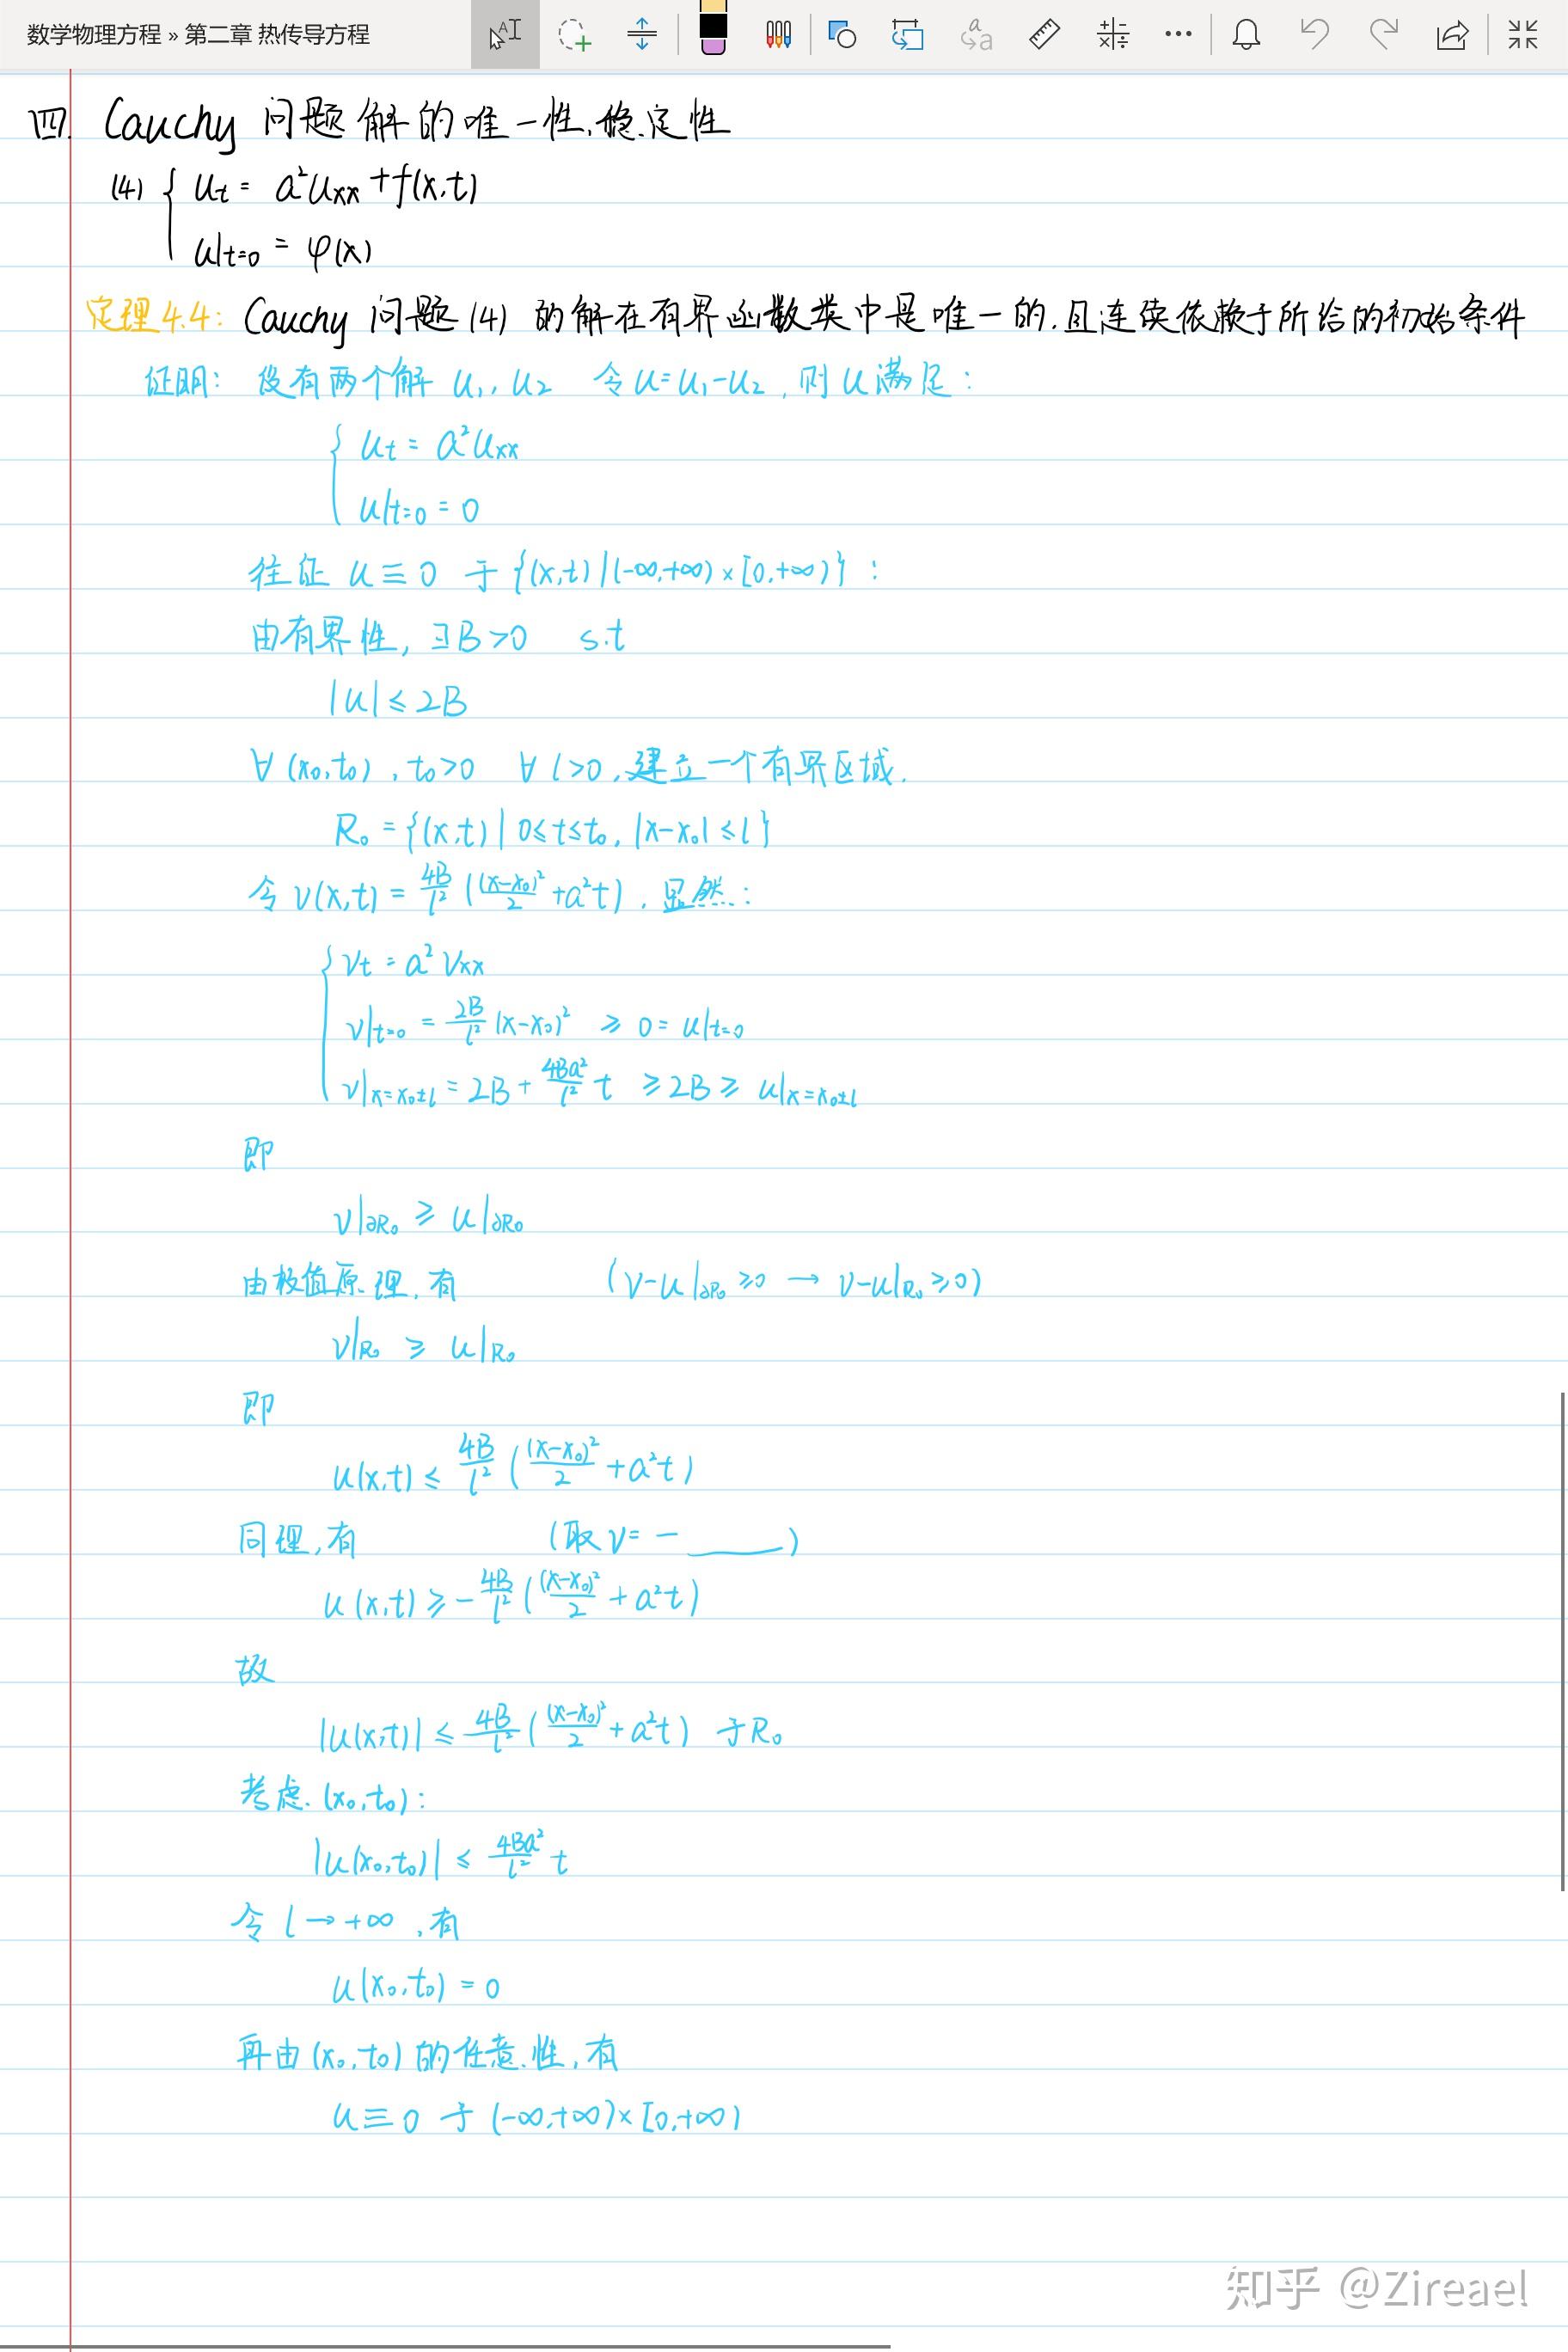 数学物理方程 » 第二章 热传导方程
四. Cauchy 问题解的唯一性、稳定性
(4) { u_t = a²u_xx + f(x,t)
u|_{t=0} = φ(x)
定理4.4: Cauchy 问题(4) 的解在有界函数类中是唯一的,且连续依赖于所给的初始条件
证明: 设有两个解 u₁, u₂ 令 u=u₁-u₂, 则 u 满足:
{ u_t = a²u_xx
u|_{t=0} = 0
往证 u ≡ 0 于 {(x,t)|(-∞,+∞)×[0,+∞)} :
由有界性, ∃B>0 s.t
|u| ≤ 2B
∀ (x₀,t₀), t₀>0 ∀ l>0, 建立一个有界区域.
R₀ = {(x,t) | 0≤t≤t₀, |x-x₀| ≤ l}
令 v(x,t) = \frac{4B}{l²} (\frac{(x-x₀)²}{2} + a²t), 显然:
{ v_t = a² v_xx
v|_{t=0} = \frac{2B}{l²} (x-x₀)² ≥ 0 = u|_{t=0}
v|_{x=x₀±l} = 2B + \frac{4Ba²}{l²} t ≥ 2B ≥ u|_{x=x₀±l}
即
v|_{∂R₀} ≥ u|_{∂R₀}
由极值原理,有 (v-u|_{∂R₀} ≥0 → v-u|_{R₀} ≥0)
v|_{R₀} ≥ u|_{R₀}
即
u(x,t) ≤ \frac{4B}{l²} (\frac{(x-x₀)²}{2} + a²t)
同理,有 (取 v = - ____)
u(x,t) ≥ -\frac{4B}{l²} (\frac{(x-x₀)²}{2} + a²t)
故
|u(x,t)| ≤ \frac{4B}{l²} (\frac{(x-x₀)²}{2} + a²t) 于R₀
考虑 (x₀,t₀):
|u(x₀,t₀)| ≤ \frac{4Ba²}{l²} t
令 l → +∞, 有
u(x₀,t₀) = 0
再由(x₀,t₀)的任意性,有
u ≡ 0 于 (-∞,+∞)×[0,+∞)
知乎 @Zireael